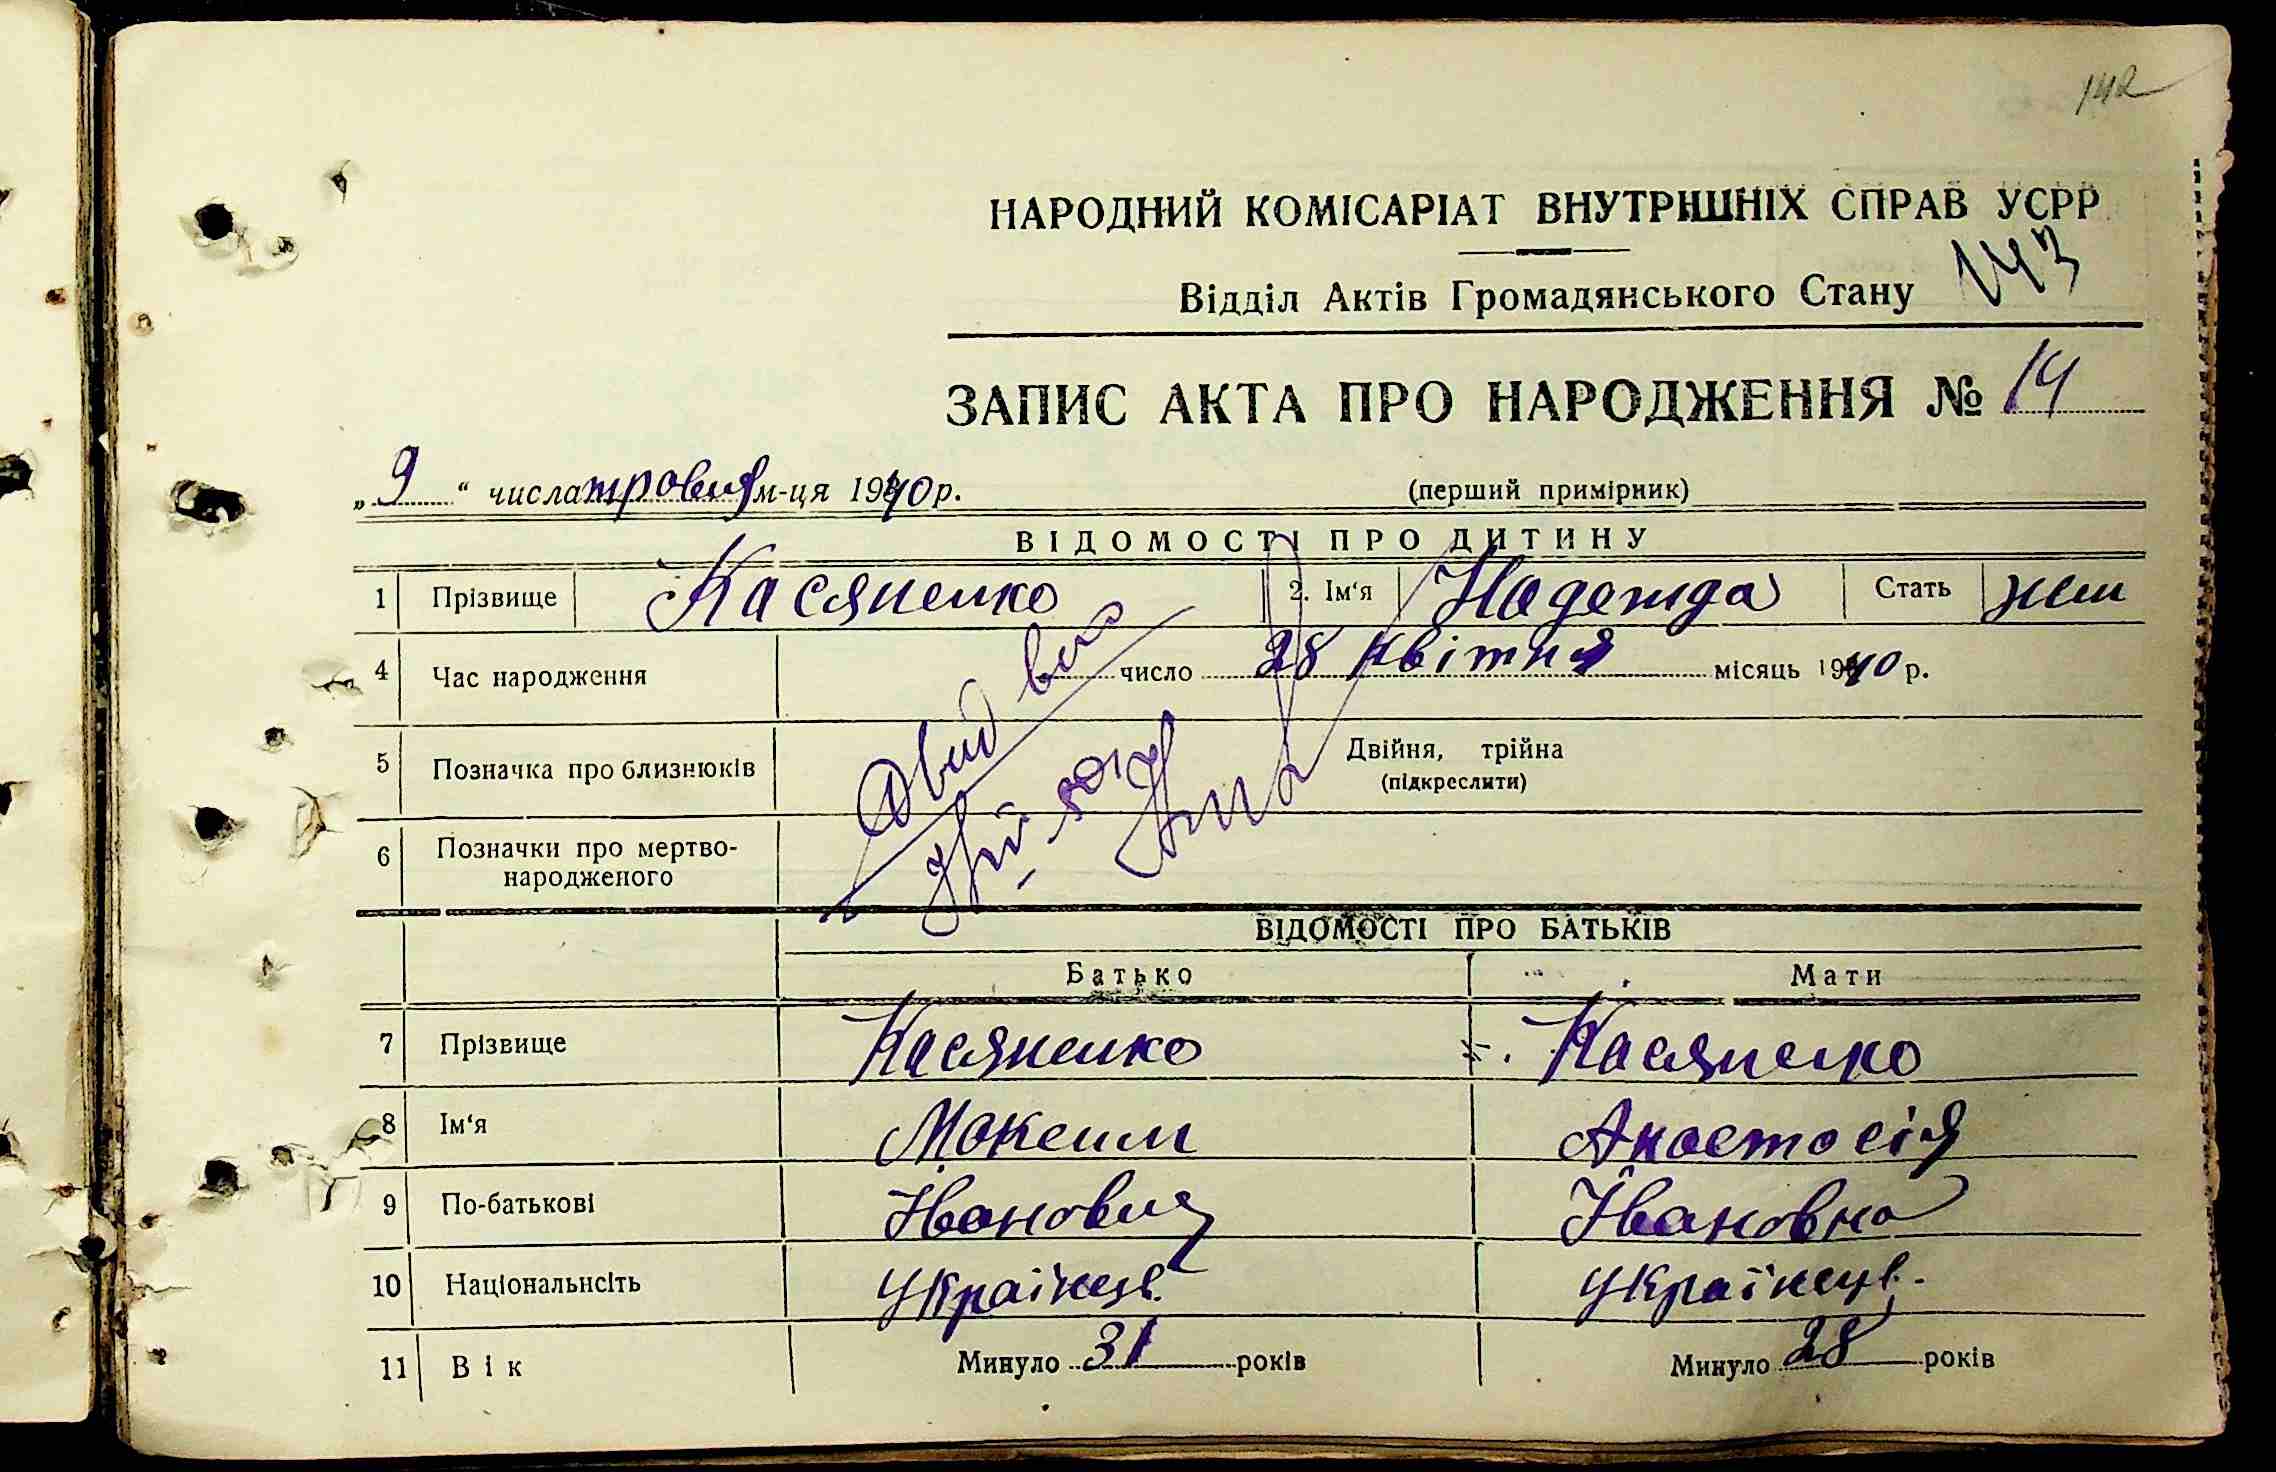 142
НАРОДНИЙ КОМІСАРІАТ ВНУТРІШНІХ СПРАВ УСРР
Відділ Актів Громадянського Стану 143
ЗАПИС АКТА ПРО НАРОДЖЕННЯ № 14
„9“ числа травня м-ця 1940 р. (перший примірник)
ВІДОМОСТІ ПРО ДИТИНУ
1 Прізвище Касяненко 2. Ім‘я Надежда Стать жін
4 Час народження число 28 квітня місяць 1940 р.
5 Позначка про близнюків Двійня, трійна
(підкреслити)
6 Позначки про мертво-
народженого
ВІДОМОСТІ ПРО БАТЬКІВ
Батько Мати
7 Прізвище Касяненко Касяненко
8 Ім‘я Максим Анастасія
9 По-батькові Іванович Івановна
10 Національнсіть Українець Українець.
11 Вік Минуло 31 років Минуло 28 років